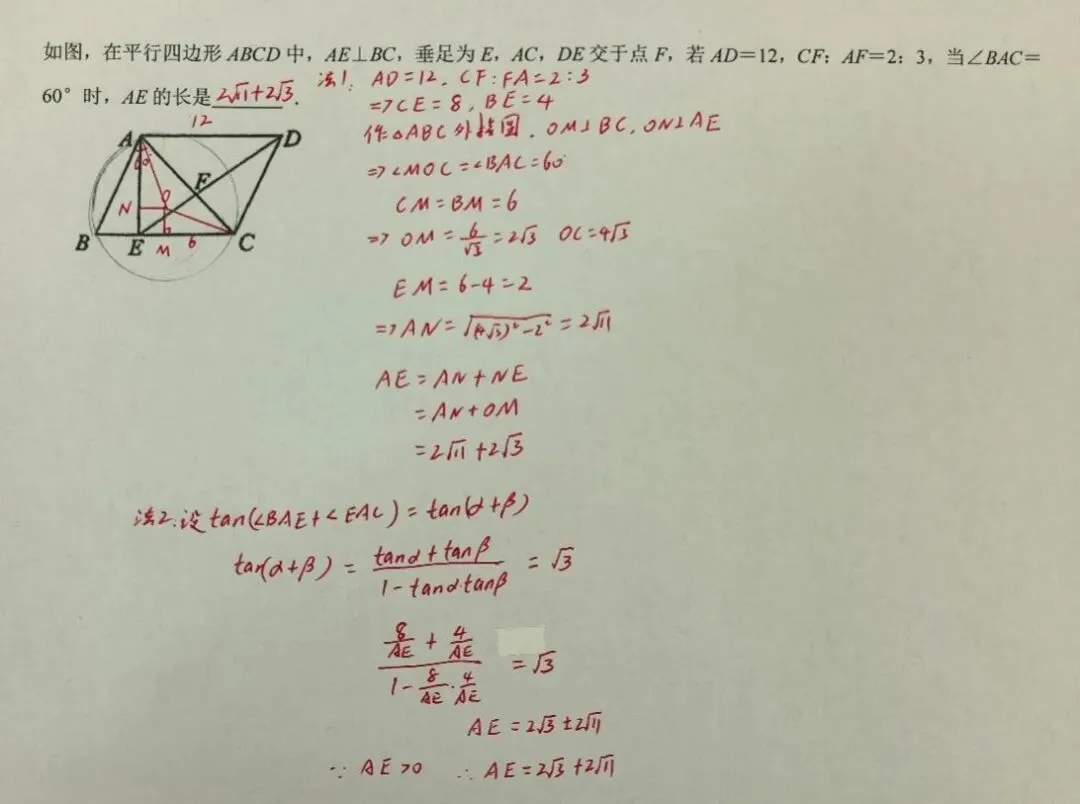 如图，在平行四边形ABCD中，AE⊥BC，垂足为E，AC，DE交于点F，若AD＝12，CF：AF＝2：3，当∠BAC＝
60°时，AE的长是 2√11+2√3 .
法1: AD=12. CF:FA=2:3
=>CE=8, BE=4
作△ABC外接圆. OM⊥BC, ON⊥AE
=>∠MOC=∠BAC=60°
CM=BM=6
=> OM=6/√3=2√3 OC=4√3
EM=6-4=2
=>AN=√((4√3)²-2²)=2√11
AE=AN+NE
=AN+OM
=2√11+2√3
12
A
D
60°
F
O
N
B
E
M
6
C
法2:设tan(∠BAE+∠EAC)=tan(α+β)
tan(α+β)=(tanα+tanβ)/(1-tanα·tanβ)=√3
(8/AE+4/AE)/(1-8/AE·4/AE)=√3
AE=2√3±2√11
∵AE>0 ∴AE=2√3+2√11